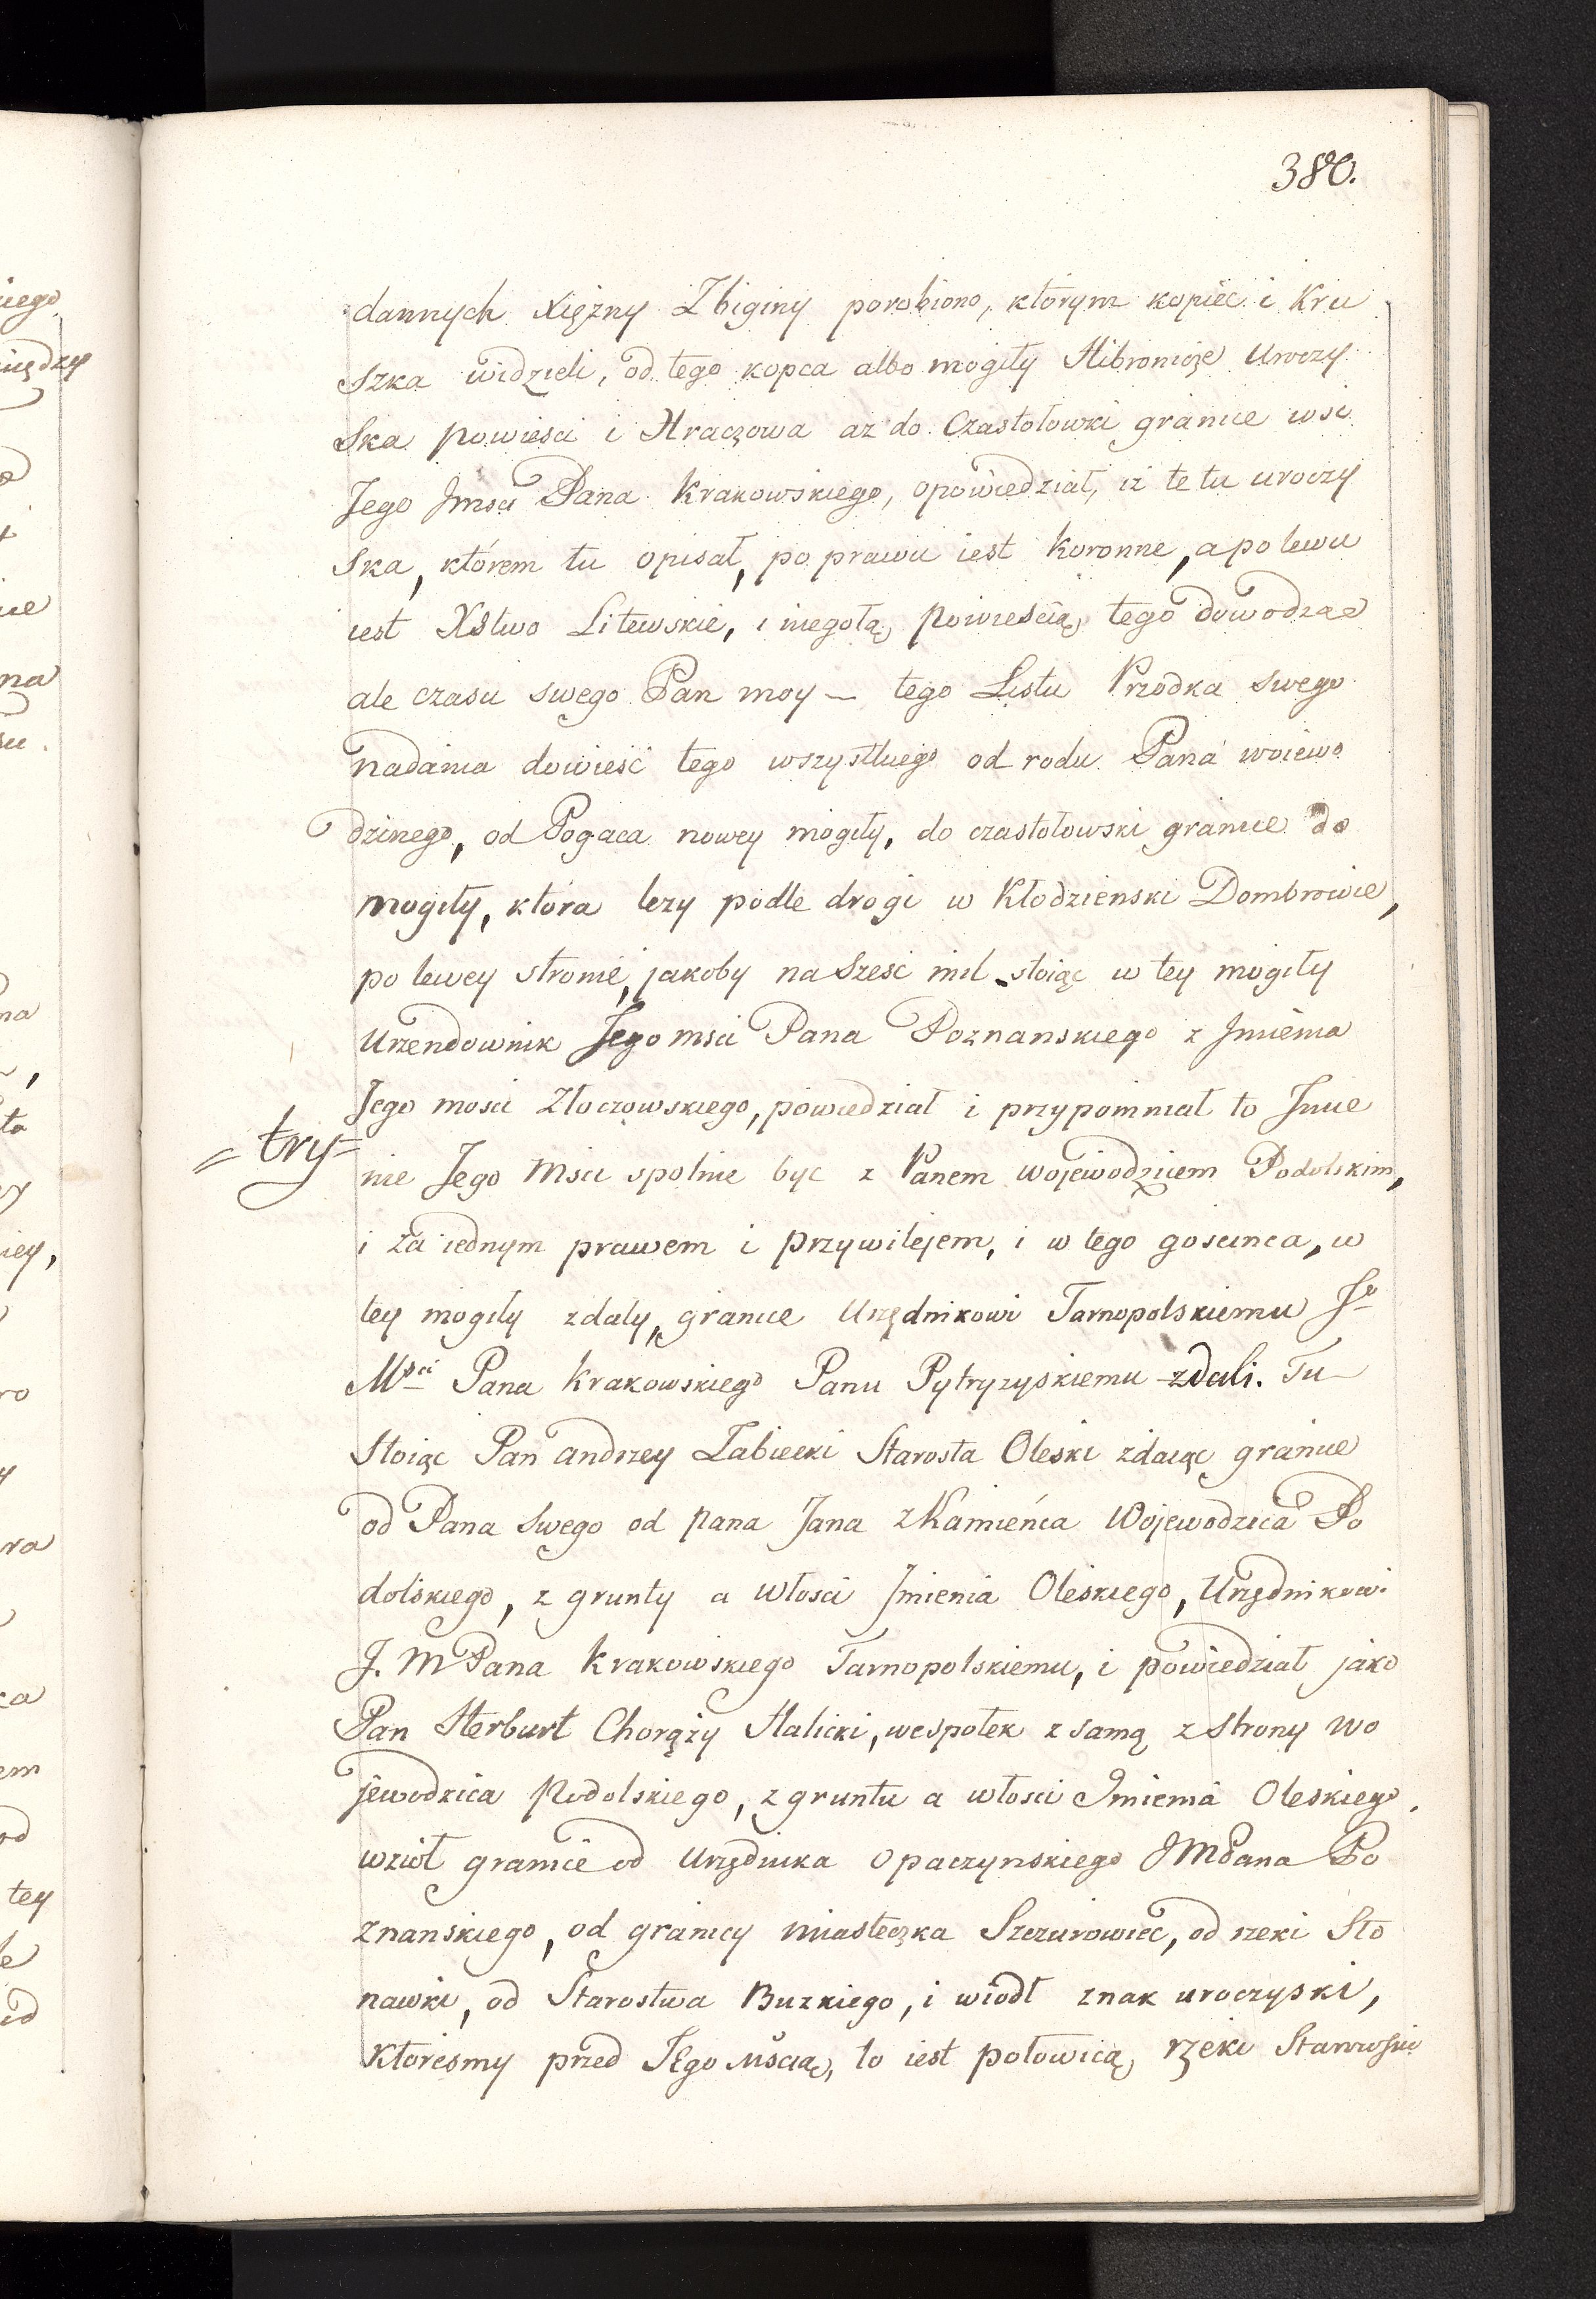 380.
dannych Xiężny Zbiginy porobiono, którym kopiec i Kru
szka widzieli, od tego kopca albo mogiły Hibronicze Uroczy
Ska powieści i Hraczowa az do Czastołowki granice wsi
Jego Jmści Pana Krakowskiego, opowiedział, iż te tu uroczy
ska, którem tu opisał, po prawu iest Koronne, a po lewu
iest Xstwo Litewskie, i niegołą powieścią, tego dowodzae
ale czasu swego Pan moy — tego Listu Przodka swego
nadania dowieść tego wszystkiego od rodu Pana woiewo
dzinego, od Pogaca nowey mogiły, do czastołowski granice do
mogiły, która lezy podle drogi w Kłodzienski Dombrowie,
po lewey stronie, jakoby na Sześć mil stoiąc w tey mogiły
Urzendownik Jegomści Pana Poznanskiego z Jmienia
Jego mosci Złoczowskiego, powiedział i przypomniał to Jmie
=try=
nie Jego Mści spolnie byc z Panem wojewodzicem Podolskim,
i za iednym prawem i przywilejem, i w tego goscinca, w
tey mogiły zdały, granice Urzędnikowi Tarnopolskiemu Jo
Mści Pana Krakowskiego Panu Pytryzyskiemu zdali. Tu
Stoiąc Pan andrzey Łabiecki Starosta Oleski zdaiąc granice
od Pana Swego od pana Jana z Kamieńca Wojewodzica Po
dolskiego, z grunty a Włosci Jmienia Oleskiego, Urzędnikowi
J. M Pana Krakowskiego Tarnopolskiemu, i powiedział jako
Pan Herburt Chorąży Halicki, wespołek z samą z Strony Wo
jewodzica Podolskiego, z gruntu a włosci Jmienia Oleskiego,
wziół granice od Urzędnika Opaczynskiego JMPana Po
znanskiego, od granicy miasteczka Szczurowiec, od rzeki Sło
nawki, od Starostwa Buzkiego, i wiodł znak uroczyski,
Któresmy przed JEgo Mścią, to iest połowicą rzeki